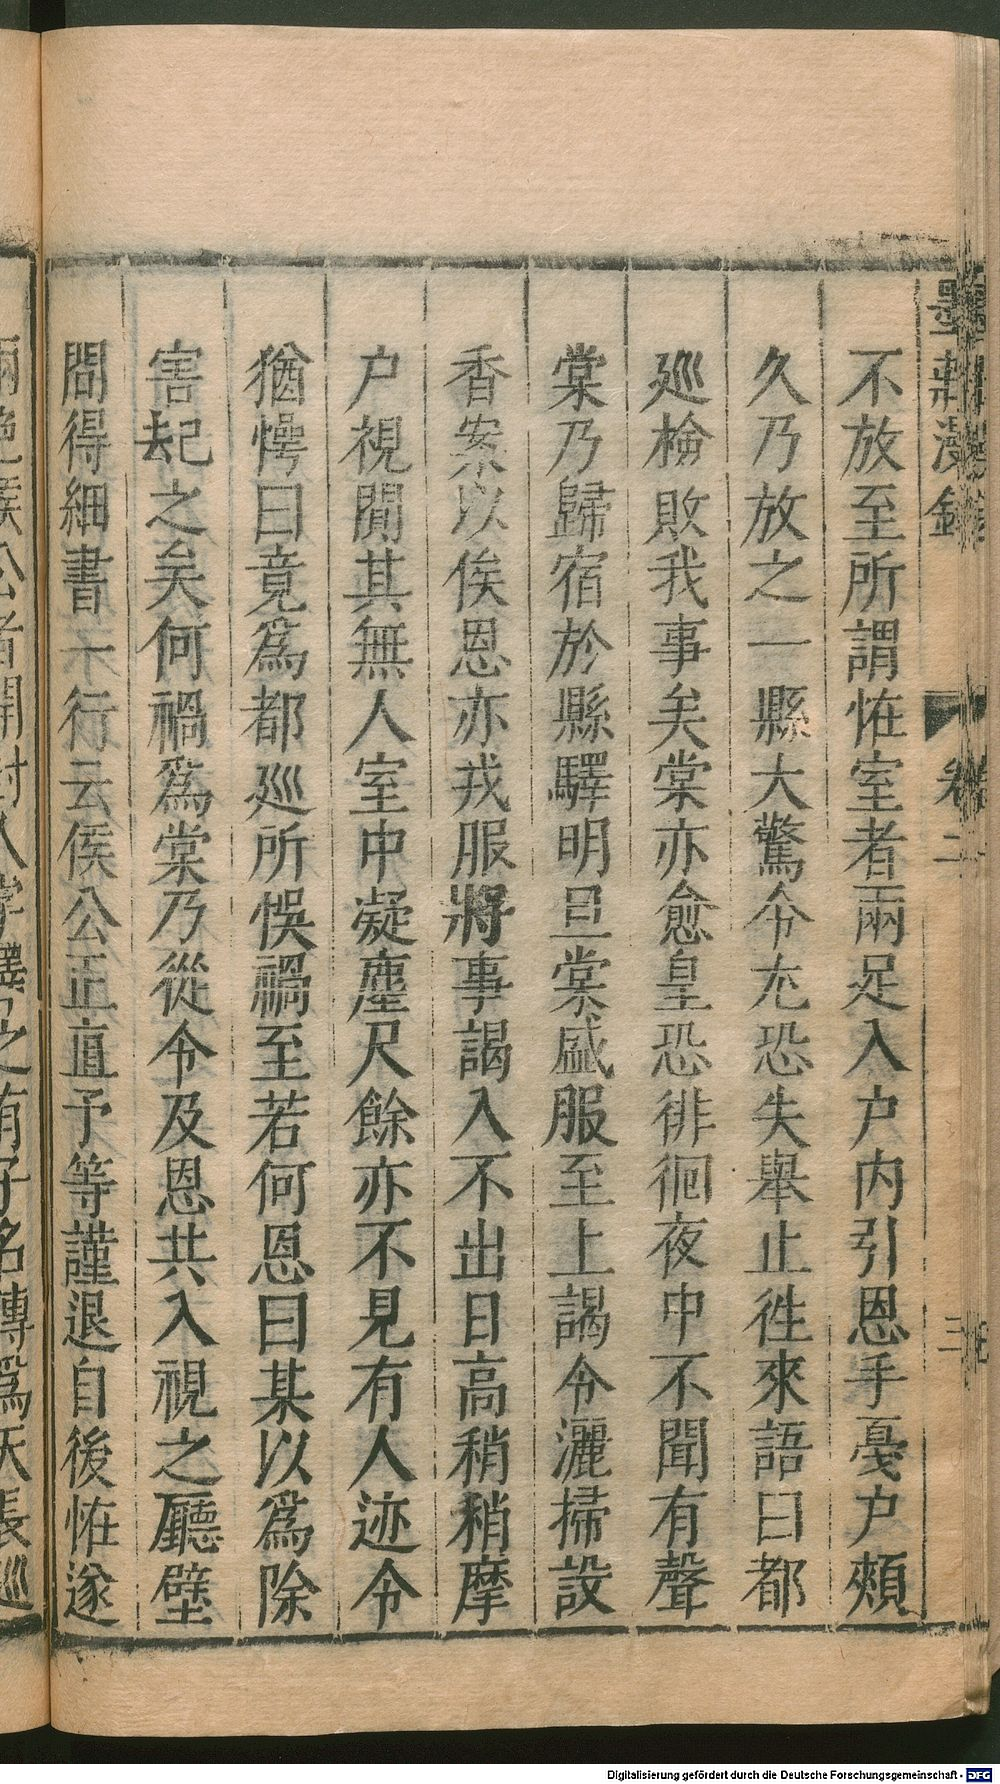 墨莊漫錄
卷二
三
不放至所謂恠室者兩足入户内引恩手戞户頰
久乃放之一縣大驚令尤恐失舉止徃來語曰都
廵檢敗我事矣棠亦愈皇恐徘徊夜中不聞有聲
棠乃歸宿於縣驛明旦棠盛服至上謁令灑掃設
香案以俟恩亦戎服將事謁入不出日高稍稍摩
户視闃其無人室中凝塵尺餘亦不見有人迹令
猶愕曰竟爲都廵所悞禍至若何恩曰某以爲除
害起之矣何禍爲棠乃從令及恩共入視之廳壁
問得細書一行云侯公正直予等謹退自後恠遂
侯公者開封人
之有子名
爲天長廵
Digitalisierung gefördert durch die Deutsche Forschungsgemeinschaft - DFG